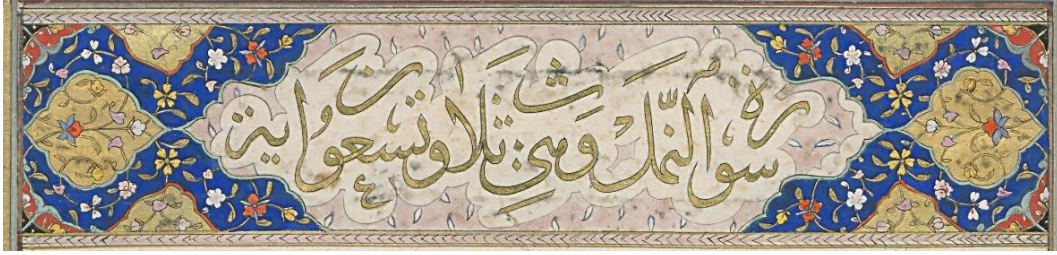 سورة النمل وهي ثلاث وتسعون اية